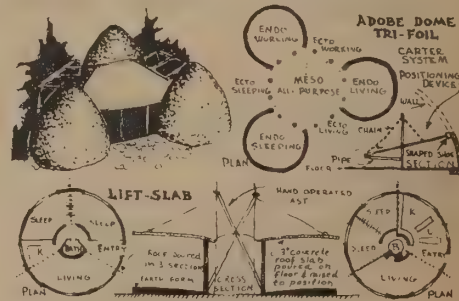 ADOBE DOME
TRI-FOIL
CARTER
SYSTEM
POSITIONING
DEVICE
ENDO
WORKING
ECTO
WORKING
ECTO
SLEEPING
MESO
ALL-PURPOSE
ENDO
LIVING
ECTO
LIVING
ENDO
SLEEPING
PLAN
WALL
CHAIN
PIPE
FLOOR
SECTION
LIFT-SLAB
SLEEP
SLEEP
K
BATH
ENTRY
LIVING
PLAN
HAND OPERATED
ROOF POURED
IN 3 SECTIONS
EARTH FORM
CROSS
SECTION
3" CONCRETE
ROOF SLAB
POURED ON
FLOOR & RAISED
TO POSITION
SLEEP
K
L
SLEEP
B
ENTRY
LIVING
PLAN